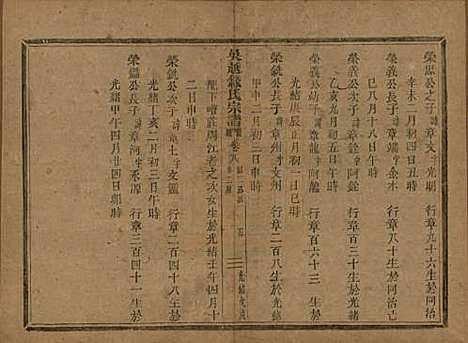 榮㵾公之子諱章文字光明 行章九十六生於同治
辛未二月初四日丑時
榮義公長子諱章端字金水 行章八十生於同治己
巳八月十八日午時
榮義公次子諱章銓字阿銓 行章百三十生於光緒
乙亥九月初五日午時
榮義公幼子諱章龍字阿龍 行章百六十三 生於
光緒庚辰正月初一日巳時
榮銑公長子諱章州字文州 行章二百八生於光緒
甲申二月初三日申時
吳越錢氏宗譜 卷八
配下嶒莊周江者之次女生於光緒壬午四月十
七日申時
榮銑公次子諱章土字文鑑 行章二百四十八生於
光緒丁亥二月初三日午時
榮 公長子諱章河字 行章二百四十一生於
光緒甲午四月廿四日卯時